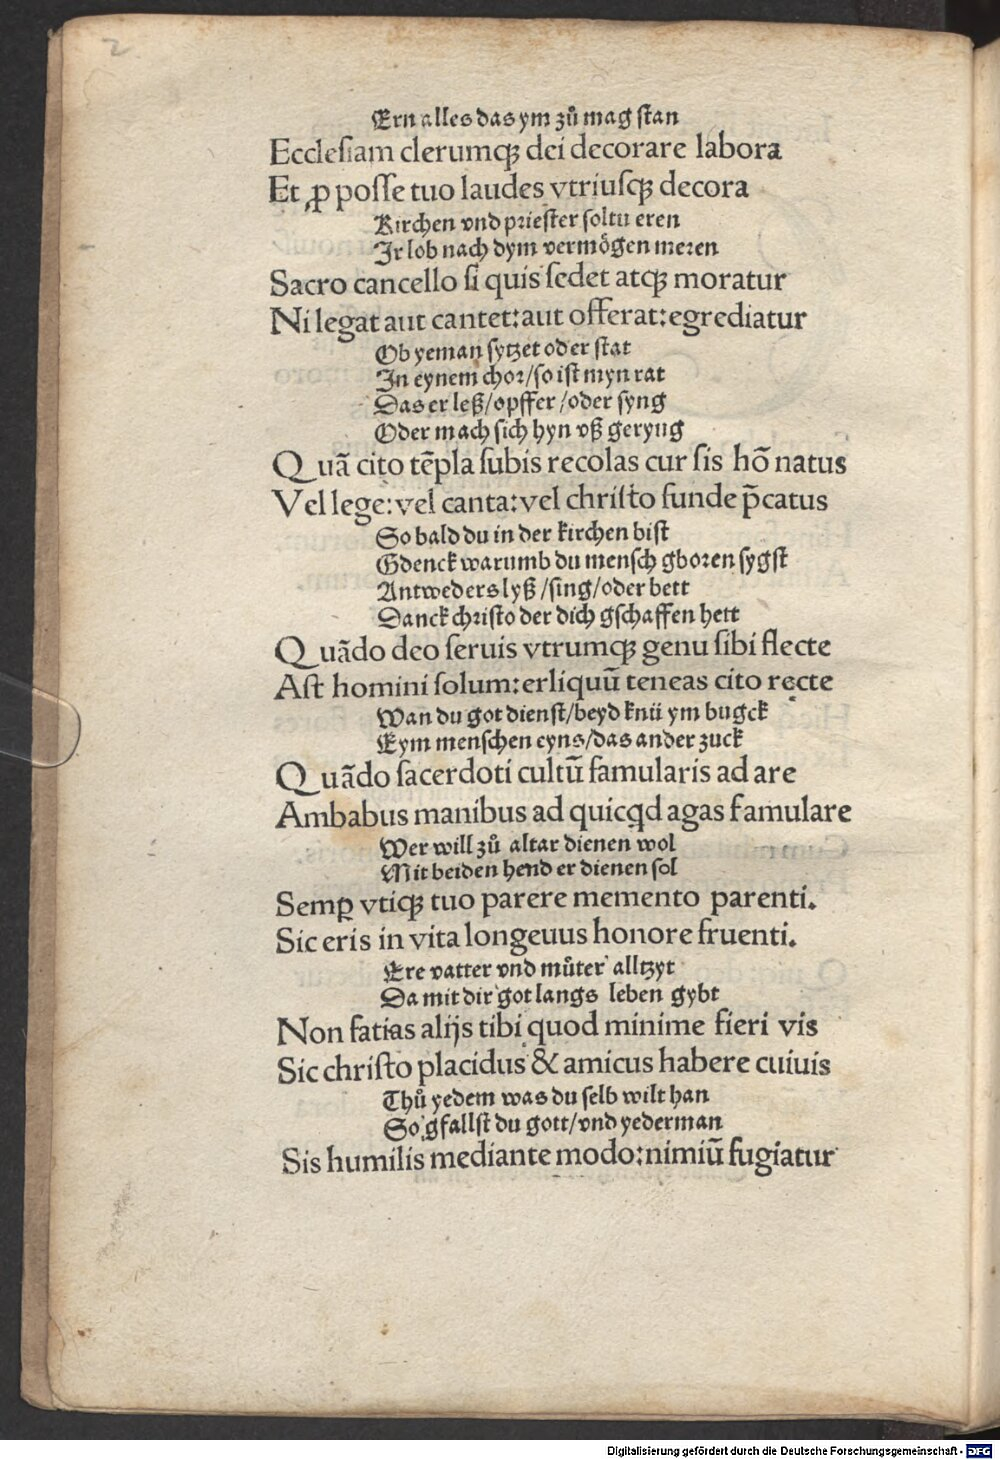 2
Ern alles das ym zů mag ſtan
Eccleſiam clerumqꝫ dei decorare labora
Et ꝓ poſſe tuo laudes vtriuſcqꝫ decora
Kirchen vnd prieſter ſoltu eren
Ir lob nach dym vermögen meren
Sacro cancello ſi quis ſedet atqꝫ moratur
Ni legat aut cantet:aut offerat:egrediatur
Ob yeman ſytzet oder ſtat
In eynem chor/ſo iſt myn rat
Das er leß/opffer/oder ſyng
Oder mach ſich hyn vß geryng
Quā cito tēpla ſubis recolas cur ſis hō natus
Vel lege:vel canta:vel chriſto funde p̄catus
So bald du in der kirchen biſt
Gdenck warumb du menſch gboren ſygſt
Antweders lyß/ſing/oder bett
Danck chriſto der dich gſchaffen hett
Quādo deo ſeruis vtrumqꝫ genu ſibi flecte
Aſt homini ſolum:erliquū teneas cito recte
Wan du got dienſt/beyd knü ym bugck
Eym menſchen eyns/das ander zuck
Quādo ſacerdoti cultū famularis ad are
Ambabus manibus ad quicꝗd agas famulare
Wer will zů altar dienen wol
Mit beiden hend er dienen ſol
Semꝑ vtiqꝫ tuo parere memento parenti.
Sic eris in vita longeuus honore fruenti.
Ere vatter vnd můter alltzyt
Da mit dir got langs leben gybt
Non fatias alijs tibi quod minime fieri vis
Sic chriſto placidus & amicus habere cuiuis
Thů yedem was du ſelb wilt han
So gfallſt du gott/vnd yederman
Sis humilis mediante modo:nimiū fugiatur
Digitalisierung gefördert durch die Deutsche Forschungsgemeinschaft - DFG